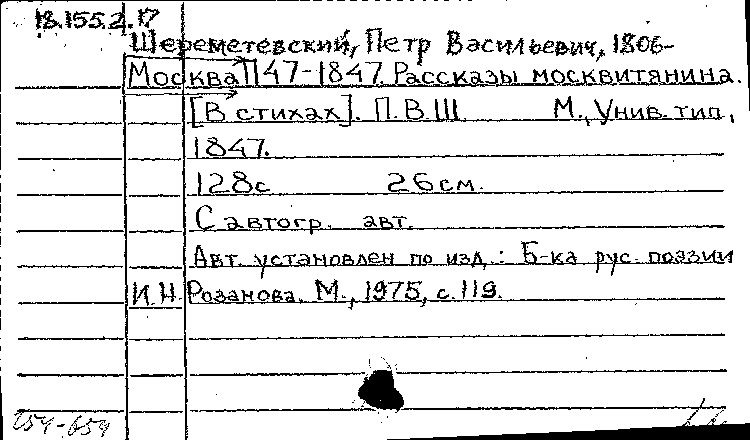 18.155.2.17
Шереметевский, Петр Васильевич, 1806-
Москва 1147-1847. Рассказы москвитянина.
[В стихах]. П.В.Ш М., Унив. тип,
1847.
128с 26см.
С автогр. авт.
Авт. установлен по изд.: Б-ка рус. поэзии
И.Н. Розанова. М., 1975, с.119.
254-659